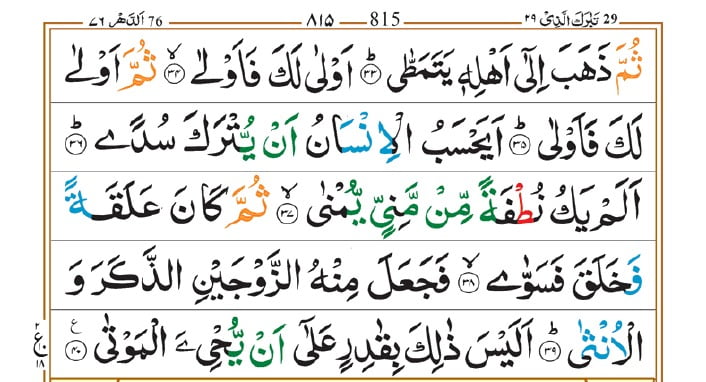 تَبٰرَكَ الَّذِىْ ٢٩ 29 815 ٨١٥ اَلدَّهْر ٧٦ 76
ثُمَّ ذَهَبَ اِلٰٓى اَهْلِهٖ يَتَمَطّٰى ؕ‏ ﴿۳۳﴾ اَوْلٰى لَكَ فَاَوْلٰى ۙ‏ ﴿۳۴﴾ ثُمَّ اَوْلٰى
لَكَ فَاَوْلٰى ؕ‏ ﴿۳۵﴾ اَيَحْسَبُ الْاِنْسَانُ اَنْ يُّتْرَكَ سُدًى ؕ‏ ﴿۳۶﴾
اَلَمْ يَكُ نُطْفَةً مِّنْ مَّنِىٍّ يُّمْنٰى ۙ‏ ﴿۳۷﴾ ثُمَّ كَانَ عَلَقَةً
فَخَلَقَ فَسَوّٰى ۙ‏ ﴿۳۸﴾ فَجَعَلَ مِنْهُ الزَّوْجَيْنِ الذَّكَرَ وَ
الْاُنْثٰى ؕ‏ ﴿۳۹﴾ اَلَيْسَ ذٰلِكَ بِقٰدِرٍ عَلٰٓى اَنْ يُّحْیِۦَ الْمَوْتٰى ﴿۴۰﴾ ع
٢ ع ١٨